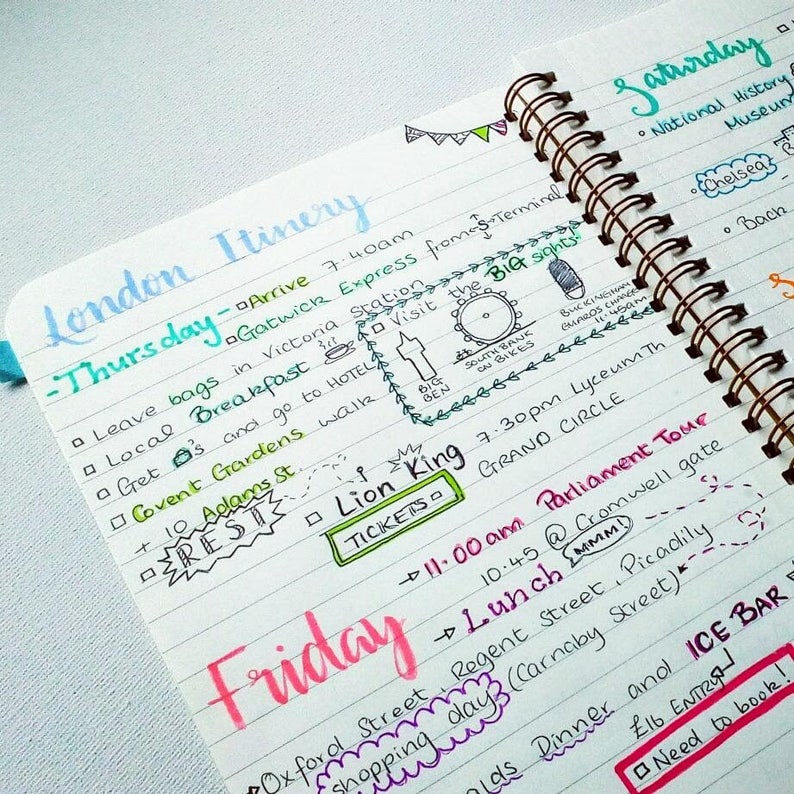 London Itinery
Thursday - Arrive 7:40am
Gatwick Express from S Terminal
Leave bags in Victoria station
Local Breakfast
Get 's and go to HOTEL
Covent Gardens walk
+ 10 Adams St.
REST
Visit the BIG sights
BIG
BEN
SOUTH BANK
ON BIKES
BUCKINGHAM
GUARDS CHANGE
11:45am
Lion King 7:30pm Lyceum Th
GRAND CIRCLE
TICKETS
Friday
11:00am Parliament Tour
10:45 @ Cromwell gate
Lunch MMM!
Oxford Street, Regent Street, Picadilly
shopping day (Carnaby Street)
alds Dinner and ICE BAR
£16 ENTRY
Need to book!
Saturday
National History
Museum
Chelsea
Back